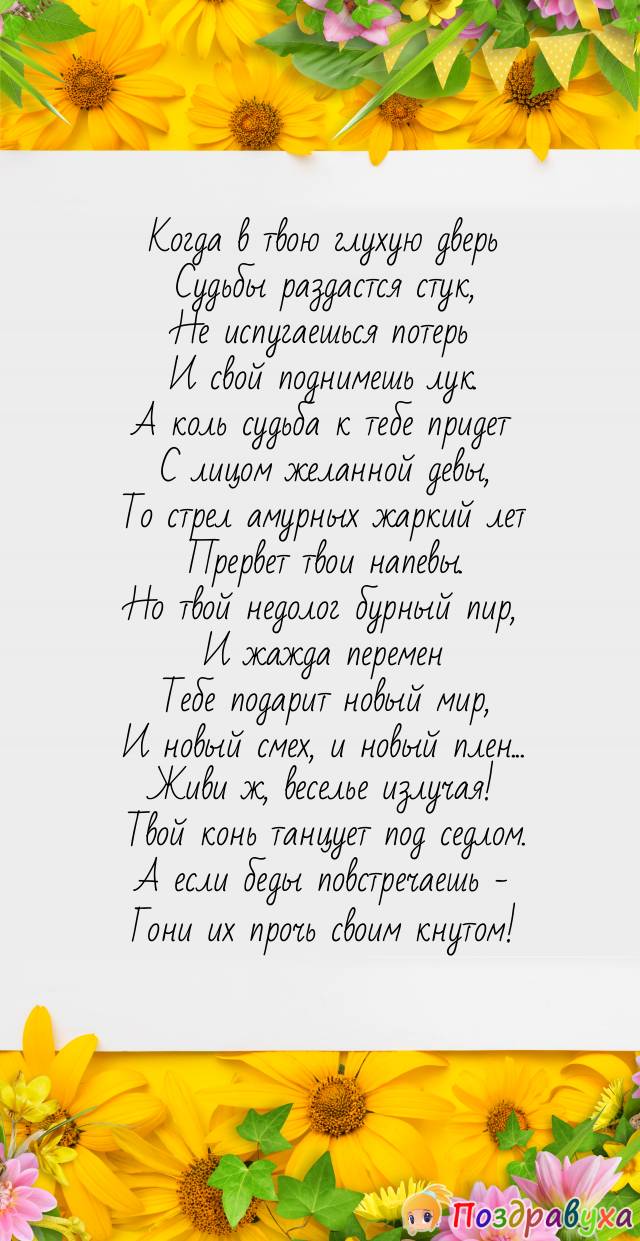 Когда в твою глухую дверь
Судьбы раздастся стук,
Не испугаешься потерь
И свой поднимешь лук.
А коль судьба к тебе придет
С лицом желанной девы,
То стрел амурных жаркий лет
Прервет твои напевы.
Но твой недолог бурный пир,
И жажда перемен
Тебе подарит новый мир,
И новый смех, и новый плен...
Живи ж, веселье излучая!
Твой конь танцует под седлом.
А если беды повстречаешь -
Гони их прочь своим кнутом!
Поздравуха